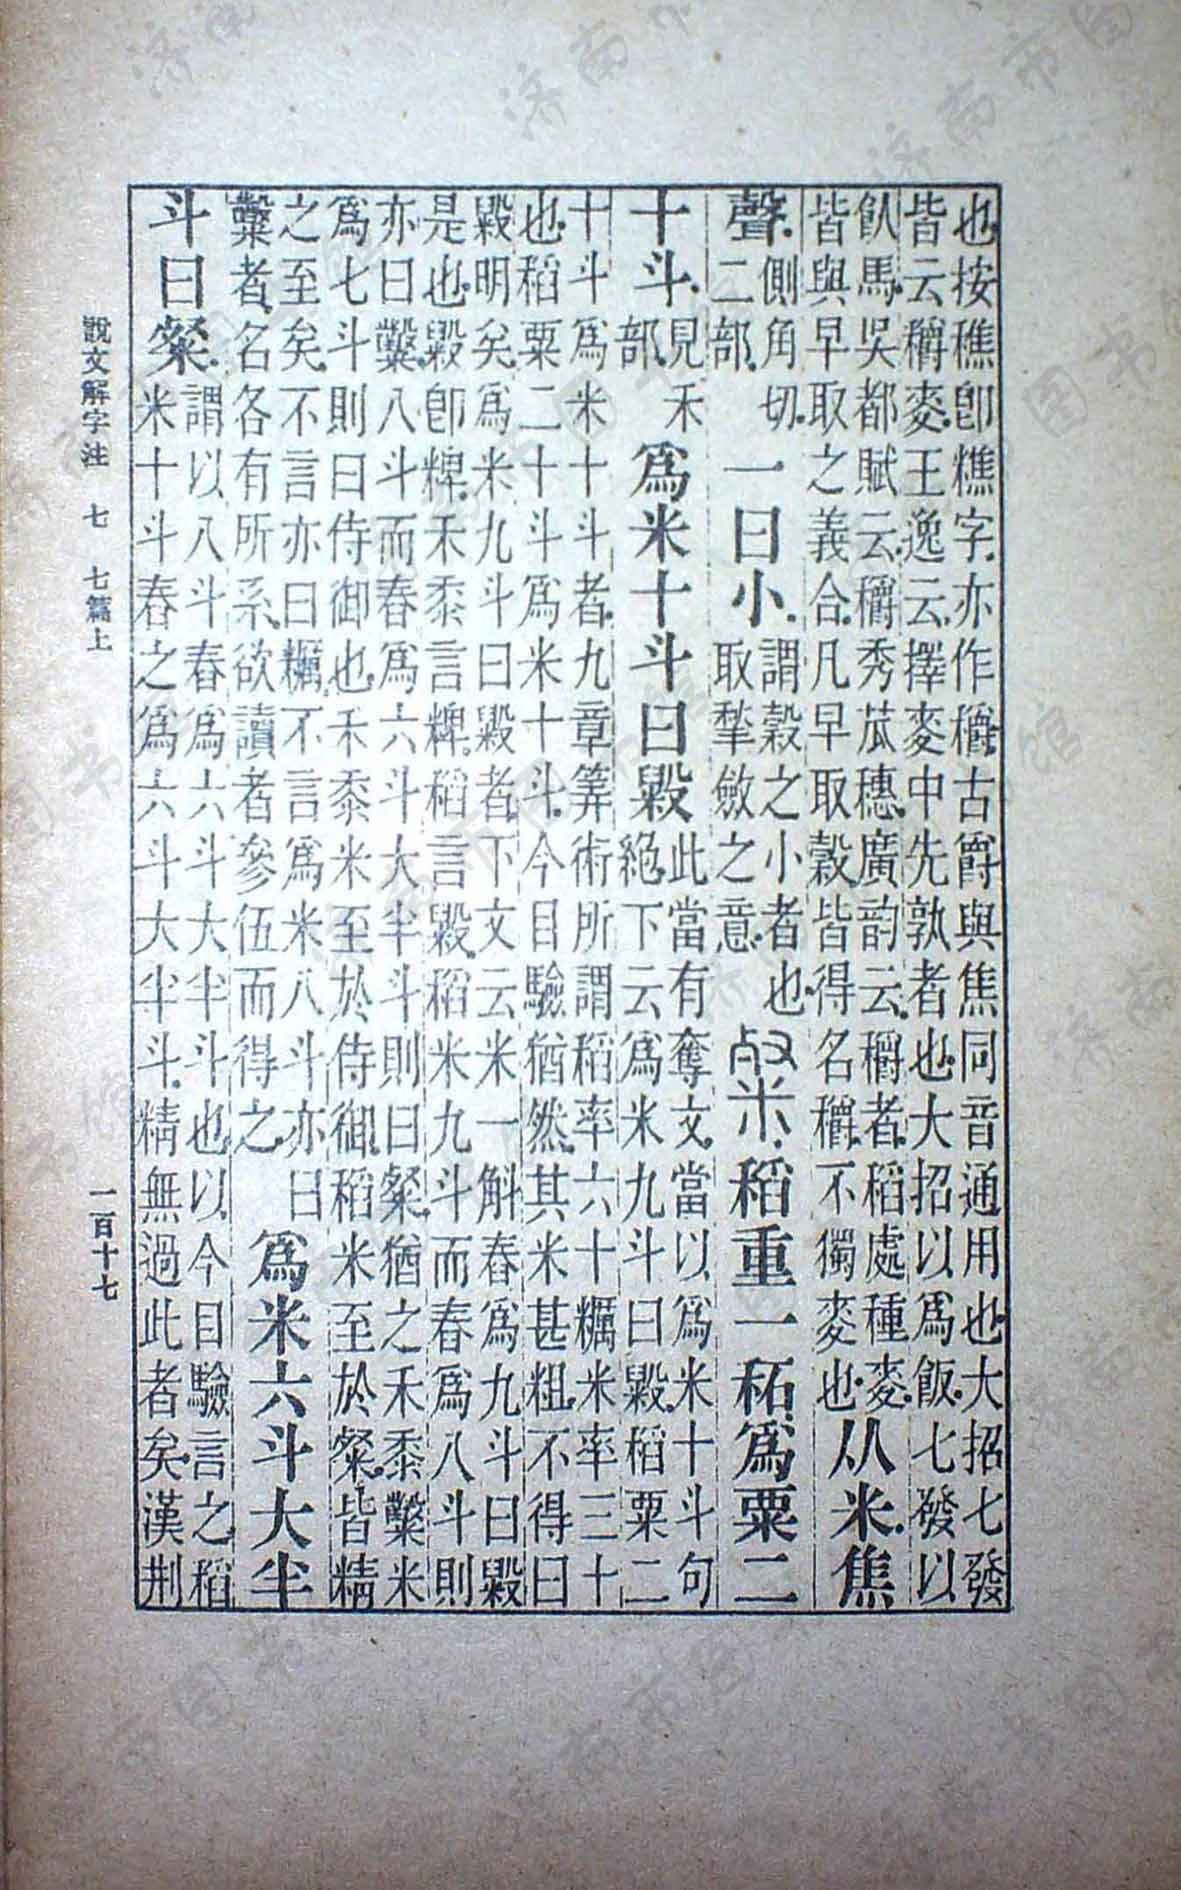 也按穛卽𥼚字亦作穱古爵與焦同音通用也大招七發
皆云穱麥王逸云擇麥中先孰者也大招以爲飯七發以
飤馬吳都賦云穱秀苽穗廣韵云穱者稻處種麥
皆與早取之義合凡早取穀皆得名穱不獨麥也
从米焦
聲
側角切
二部
一曰小
謂穀之小者也
取揫斂之意
粲稻重一䄷爲粟二
十斗
見禾
部
爲米十斗曰毇
此當有奪文當以爲米十斗句
絕下云爲米九斗曰毇稻粟二
十斗爲米十斗者九章筭術所謂稻率六十糲米率三十
也稻粟二十斗爲米十斗今目驗猶然其米甚粗不得曰
毇明矣爲米九斗曰毇者下文云米一斛舂爲九斗曰毇
是也毇卽粺禾黍言粺稻言毇稻米九斗而舂爲八斗則
亦曰糳八斗而舂爲六斗大半斗則曰粲猶之禾黍糳米
爲七斗則曰侍御也禾黍米至於侍御稻米至於粲皆精
之至矣不言亦曰糲不言爲米八斗亦曰
糳者名各有所系欲讀者參伍而得之
爲米六斗大半
斗曰粲
謂以八斗舂爲六斗大半斗也以今目驗言之稻
米十斗舂之爲六斗大半斗精無過此者矣漢荆
說文解字注 七 七篇上
一百十七